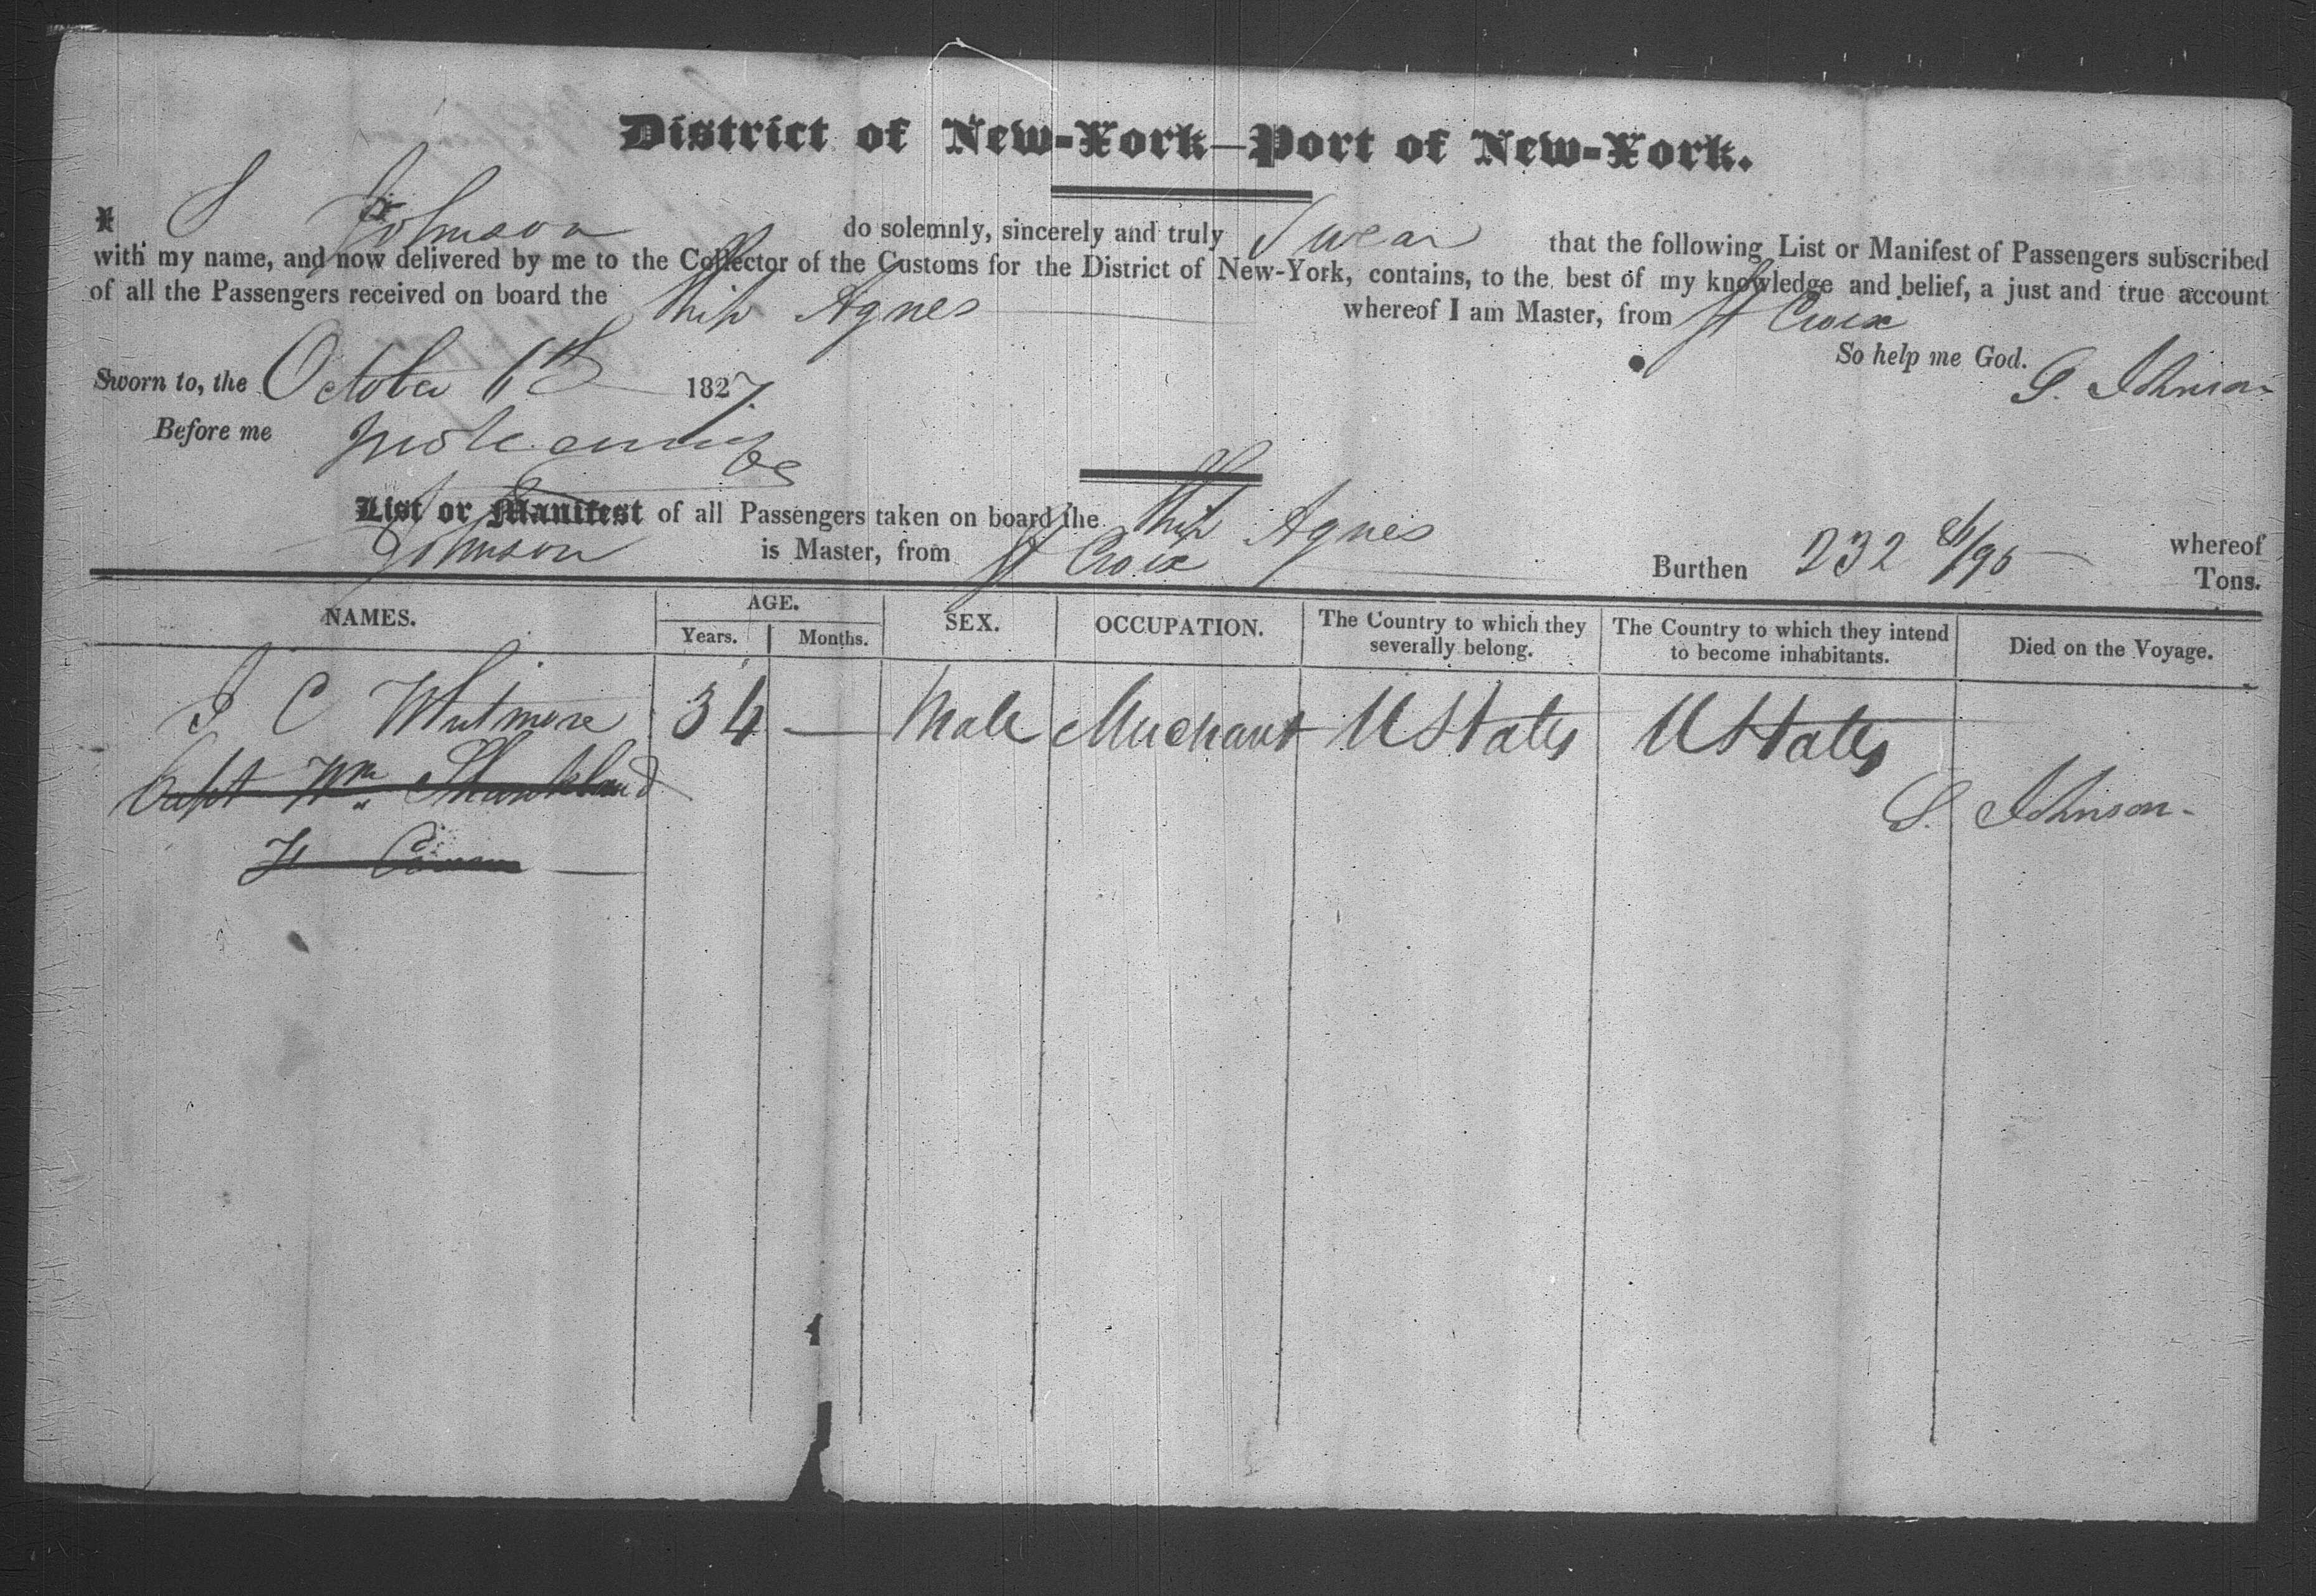 District of New-York—Port of New-York.
I S Johnson do solemnly, sincerely and truly Swear that the following List or Manifest of Passengers subscribed
with my name, and now delivered by me to the Collector of the Customs for the District of New-York, contains, to the best of my knowledge and belief, a just and true account
of all the Passengers received on board the Ship Agnes whereof I am Master, from St Croix
So help me God.
Sworn to, the October 6th 1827. S. Johnson
Before me
List or Manifest of all Passengers taken on board the Ship Agnes whereof
Johnson is Master, from St Croix Burthen 232 /95 Tons.
NAMES. AGE. SEX. OCCUPATION. The Country to which they severally belong. The Country to which they intend to become inhabitants. Died on the Voyage.
Years. Months.
J C Whitmore 34 — Male Merchant U States U States
Capt Wm Shankland
S. Johnson